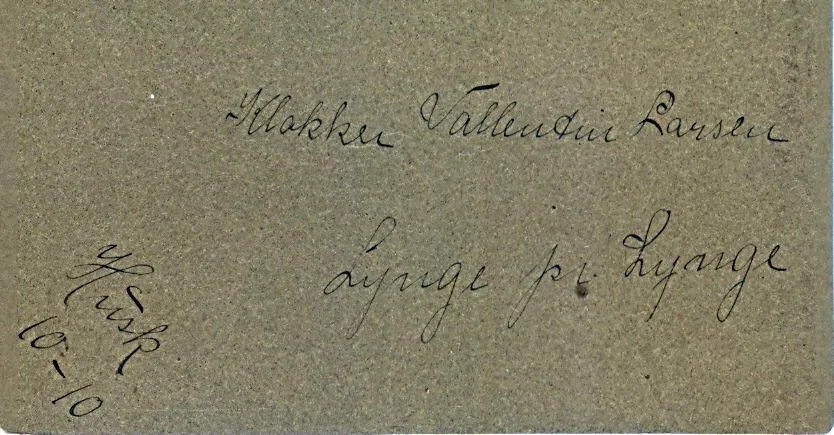 Klokker Vallentin Larsen
Lynge pr. Lynge
Husk
10-10